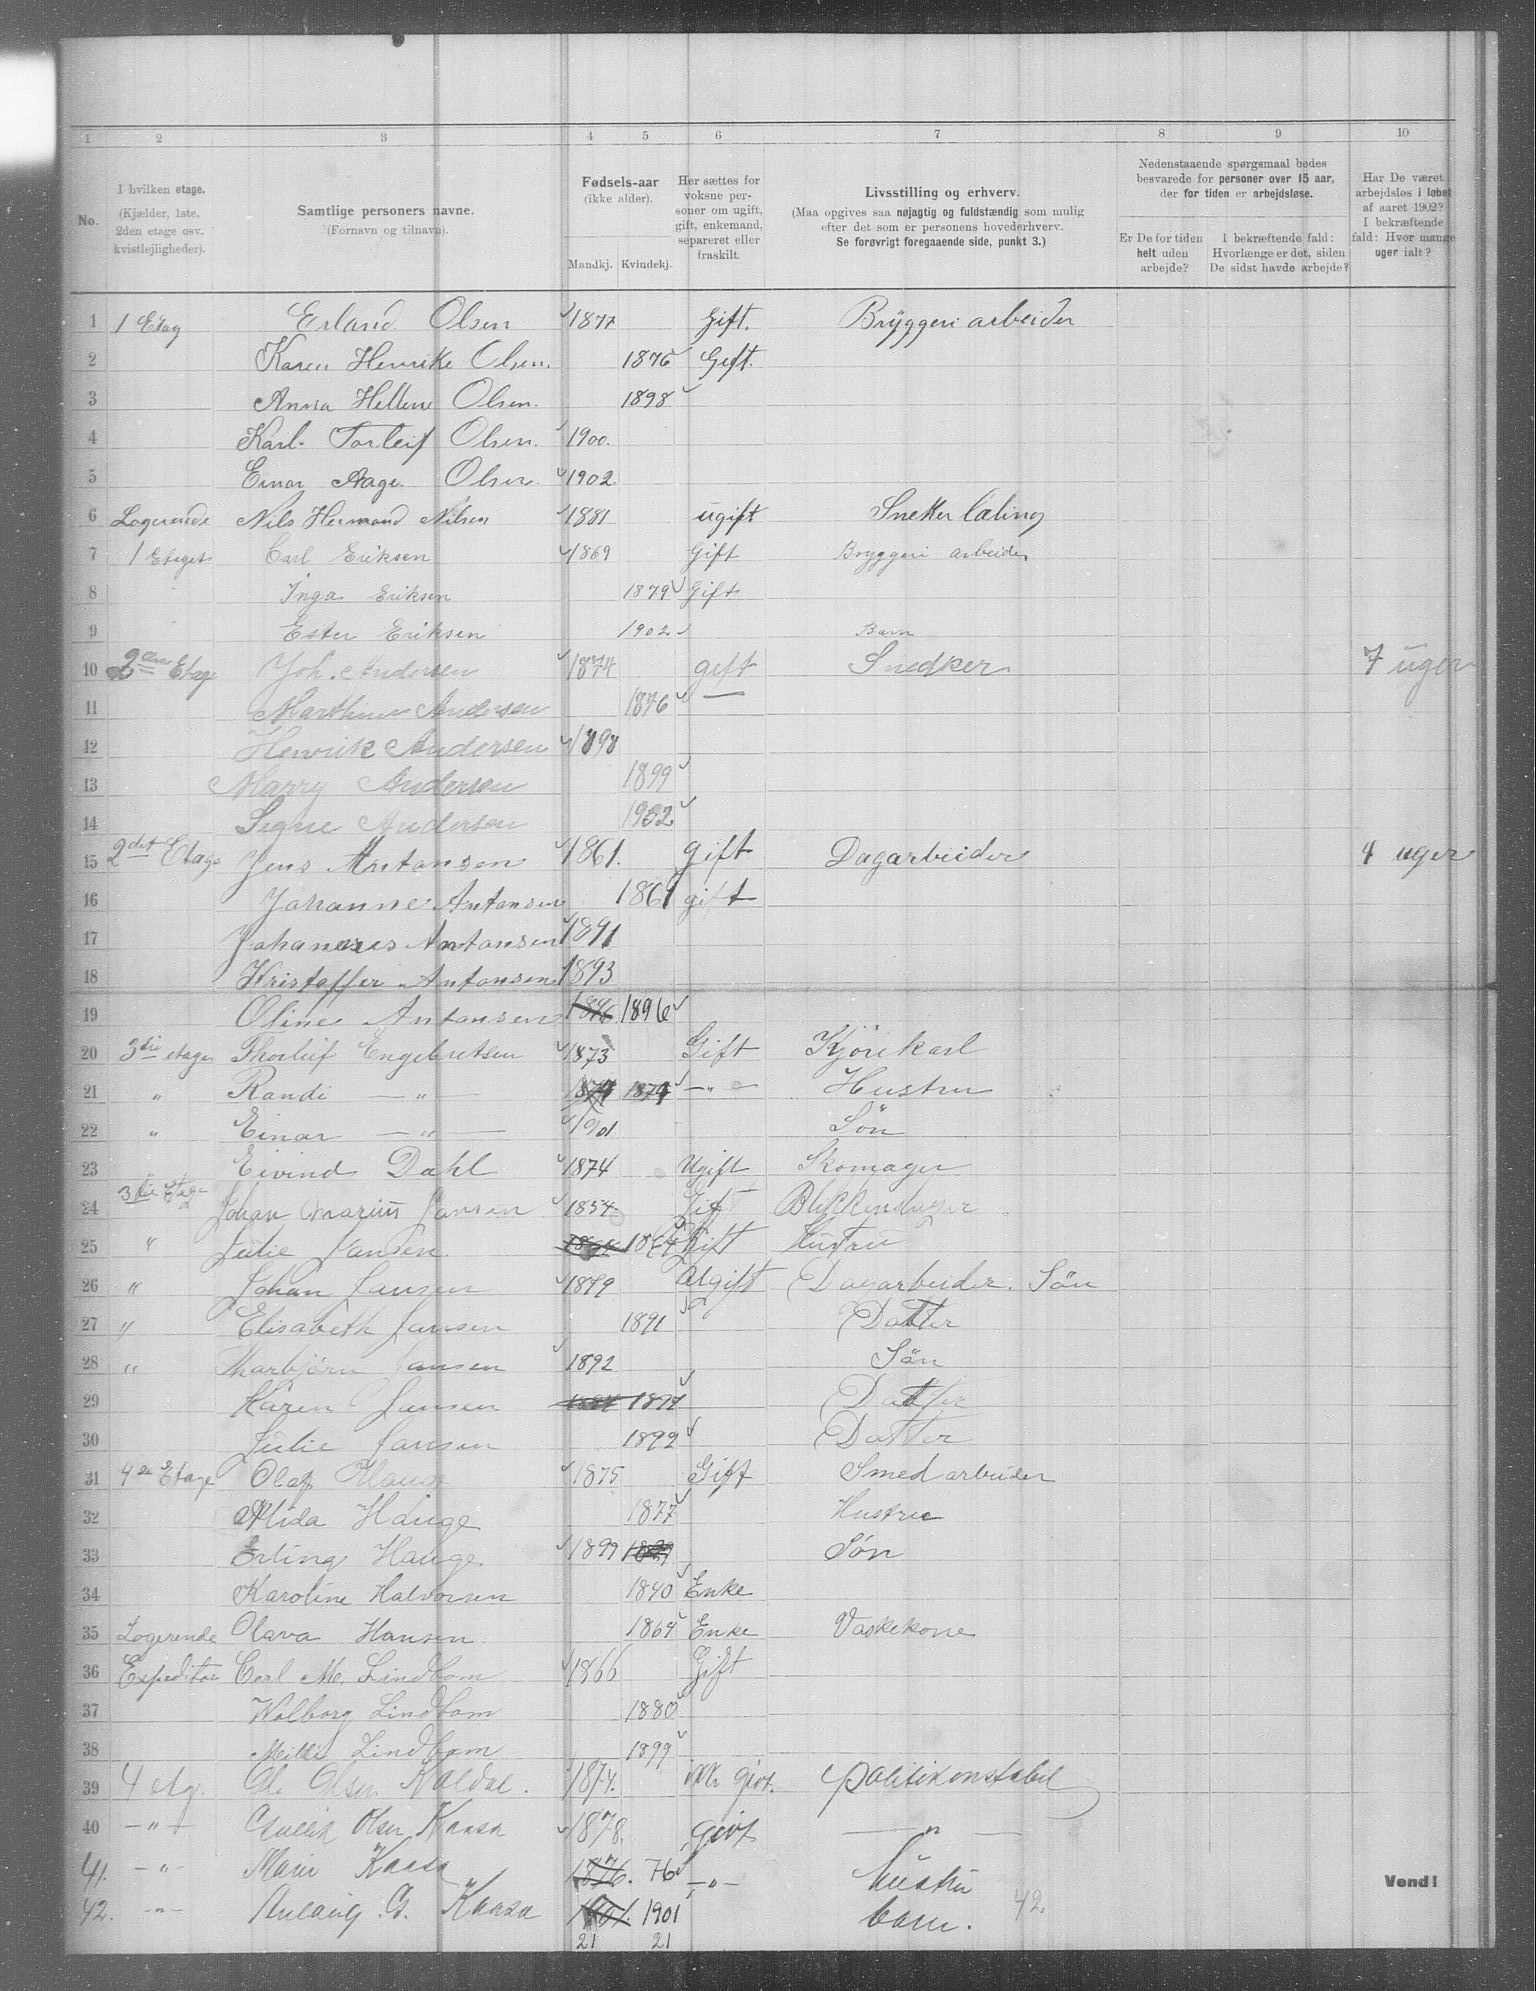 1 2 3 4 5 6 7 8 9 10
No.
I hvilken etage.
(Kjælder, 1ste, 2den etage osv. kvistlejligheder).
Samtlige personers navne.
(Fornavn og tilnavn).
Fødsels-aar
(ikke alder).
Mandkj. Kvindekj.
Her sættes for voksne personer om ugift, gift, enkemand, separeret eller fraskilt.
Livsstilling og erhverv.
(Maa opgives saa nøjagtig og fuldstændig som mulig efter det som er personens hovederhverv.
Se forøvrigt foregaaende side, punkt 3.)
Nedenstaaende spørgsmaal bedes besvarede for personer over 15 aar, der for tiden er arbejdsløse.
Er De for tiden helt uden arbejde?
I bekræftende fald: Hvorlænge er det, siden De sidst havde arbejde?
Har De været arbejdsløs i løbet af aaret 1902? I bekræftende fald: Hvor mange uger ialt?
1 1 Etag Erland Olsen 1877 Gift. Bryggeri arbeider
2 Karen Henrike Olsen. 1876 Gift.
3 Anna Hellene Olsen. 1898
4 Karl Torleif Olsen. 1900.
5 Einar Aage Olsen. 1902.
6 Logerende Nils Hermand Nilsen 1881 ugift Snekker læling
7 1 Etaget Carl Eriksen 1869 Gift Bryggeri arbeider
8 Inga Eriksen 1879 Gift
9 Ester Eriksen 1902 Barn
10 2den Etage Joh. Andersen 1874 gift Snedker 7 uger
11 Marthine Andersen 1876 —
12 Henrik Andersen 1898
13 Marry Andersen 1899
14 Signe Andersen 1902
15 2det Etage Jens Antonsen 1861. gift Dagarbeider 4 uger
16 Johanne Antonsen 1861 gift
17 Johannes Antonsen 1891
18 Kristoffer Antonsen 1893
19 Oline Antonsen 1896 1896
20 3die etage Thorleif Engebretsen 1873 Gift Kjörekarl
21 " Randi — " — 1874 1874 — " — Hustru
22 " Einar — " — 1901 Sön
23 " Eivind Dahl 1874 Ugift Skomager
24 3die Etage Johan Marius Jansen 1854. Gift Blikkenslager
25 " Julie Jansen 1864 Gift Hustru
26 " Johan Jansen 1879 Ugift Dagarbeider. Sön
27 " Elisabeth Jansen 1891 Datter
28 " Thorbjörn Jansen 1892 Sön
29 Karen Jansen 1897 Datter
30 Julie Jansen 1892 Datter
31 4de Etage Olaf Hauge 1875 Gift Smed arbeider
32 Alida Hauge 1877 Hustru
33 Erling Hauge 1899 1899 Søn
34 Karoline Halvorsen 1840 Enke
35 Logerende Olava Hansen 1864 Enke Vaskekone
36 Expeditør Carl M. Lindbom 1866 Gift
37 Walborg Lindbom 1880
38 Milli Lindbom 1899
39 4 etg. Ole Olsen Kaldal. 1874. ikke givt. politikonstabel
40 — " — Gullik Olsen Kaasa 1878. givt — " —
41. — " — Marie Kaasa 1876. 76 — " — hüstrü
42. — " — Aulaug G. Kaasa 1901. 1901 barn. 42.
21 21
Vend!